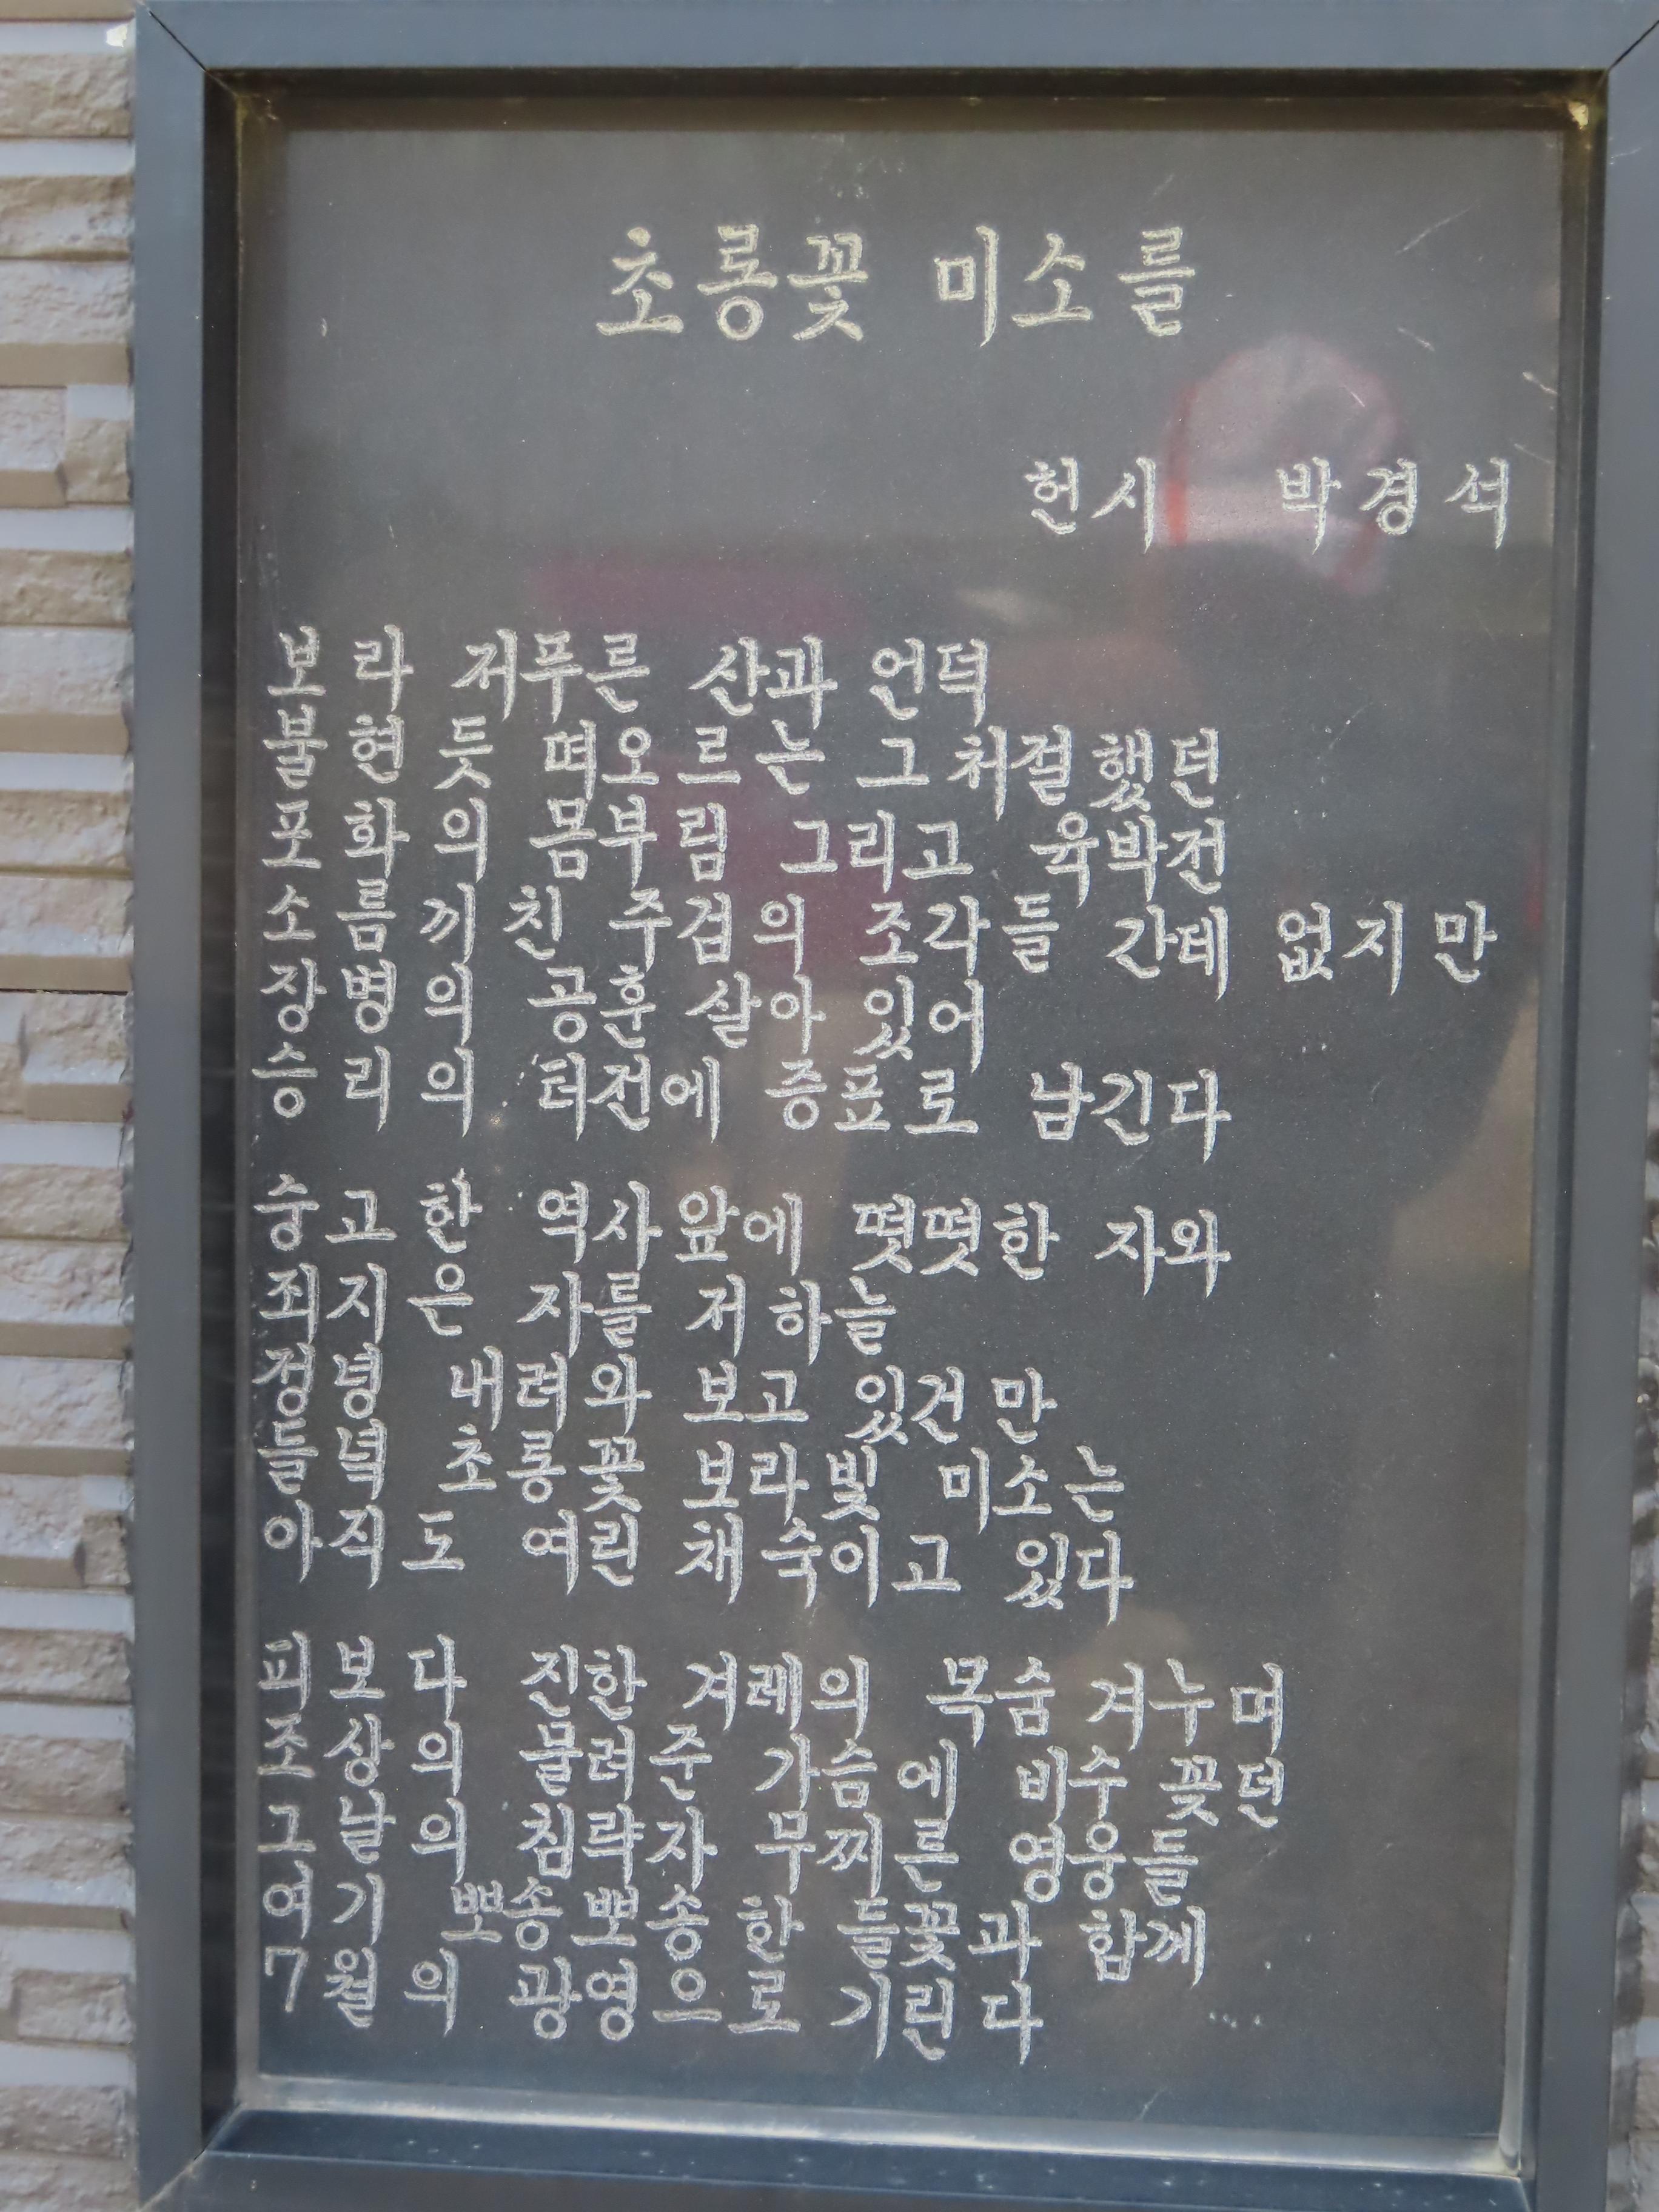 초롱꽃 미소를
헌시 박경석
보라 저푸른 산과 언덕
불현듯 떠오르는 그 처절했던
포화의 몸부림 그리고 육박전
소름끼친 주검의 조각들 간데 없지만
장병의 공훈 살아 있어
승리의 터전에 증표로 남긴다
숭고한 역사앞에 떳떳한 자와
죄지은 자를 저 하늘
정녕 내려와 보고 있건만
들녘 초롱꽃 보라빛 미소는
아직도 여린 채 숙이고 있다
피보다 진한 겨레의 목숨 겨누며
조상의 물려준 가슴에 비수 꽂던
그날의 침략자 무찌른 영웅들
여기 뽀송뽀송한 들꽃과 함께
7월의 광영으로 기린다